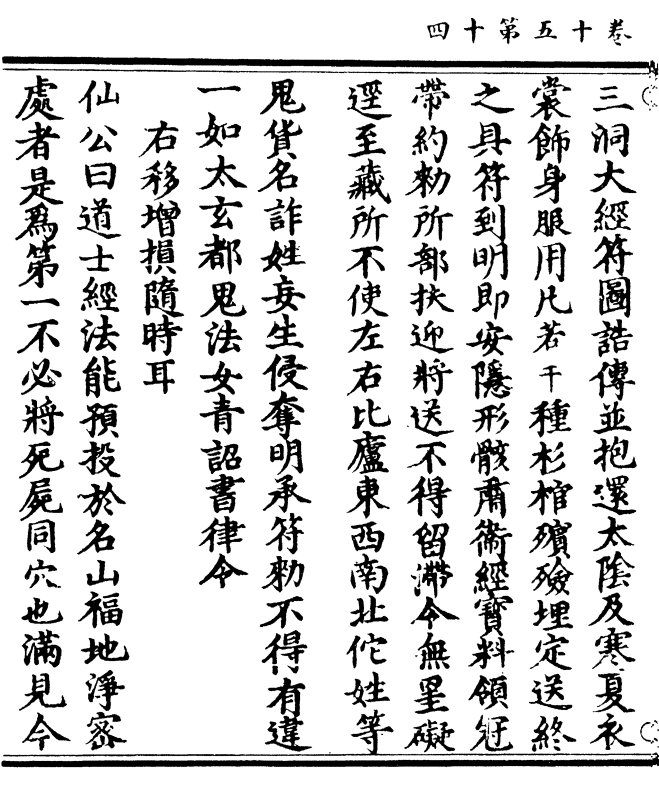 卷十五第十四
三洞大經符圖誥傳並抱還太陰及寒夏衣
裳飾身服用凡若干種杉棺殯殮埋定送終
之具符到明即安隱形骸肅衞經寶料領冠
帶約勑所部扶迎將送不得留滯令無罣礙
逕至藏所不使左右比廬東西南北佗姓等
鬼貨名詐姓妄生侵奪明承符勑不得有違
一如太玄都鬼法女青詔書律令
右移增損隨時耳
仙公曰道士經法能預投於名山福地淨密
處者是爲第一不必將死屍同穴也滿見今